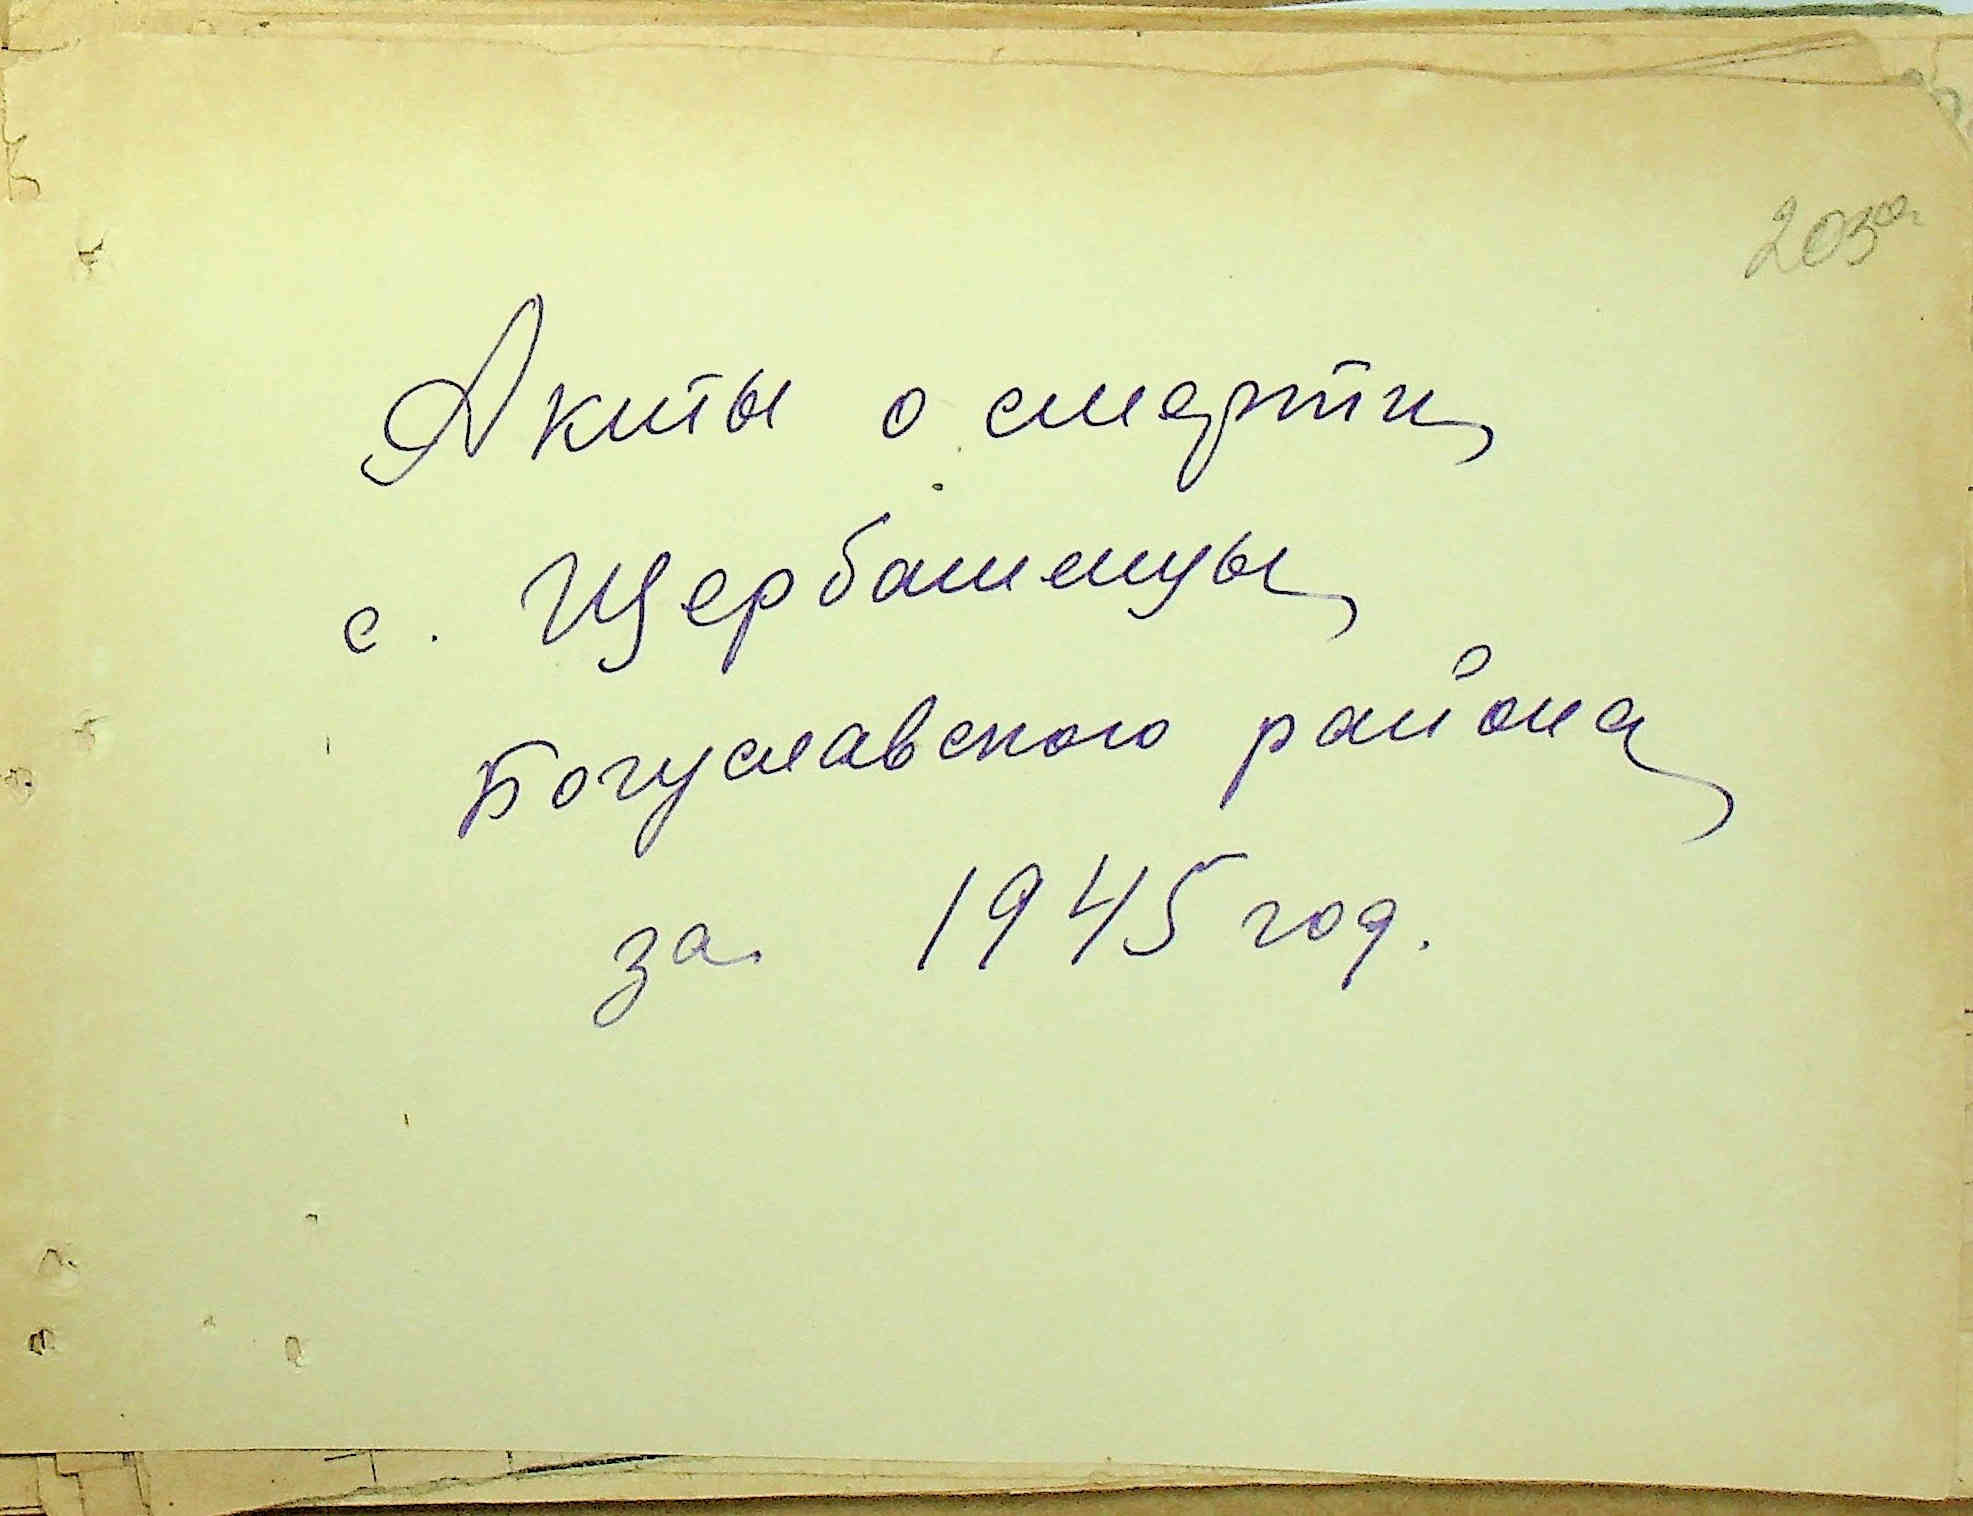 203а
Акты о смерти
с. Щербашенцы
Богуславского района
за 1945 год.